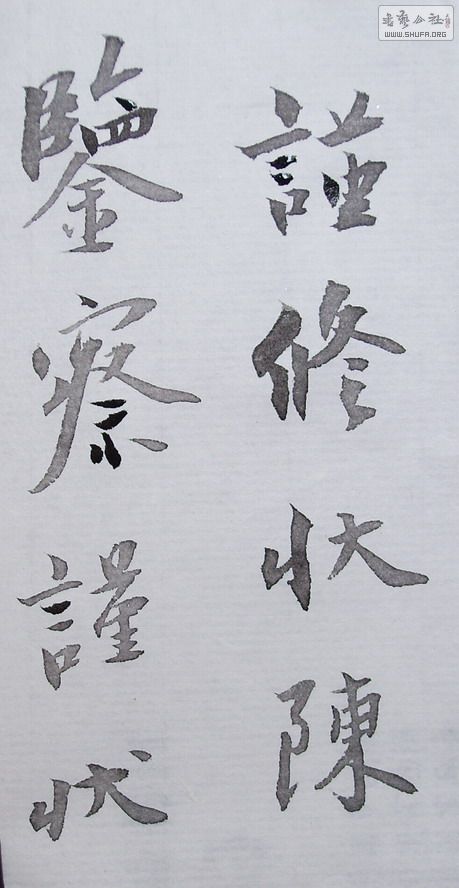 謹修狀陳
鑒察謹狀
書藝公社
WWW.SHUFA.ORG